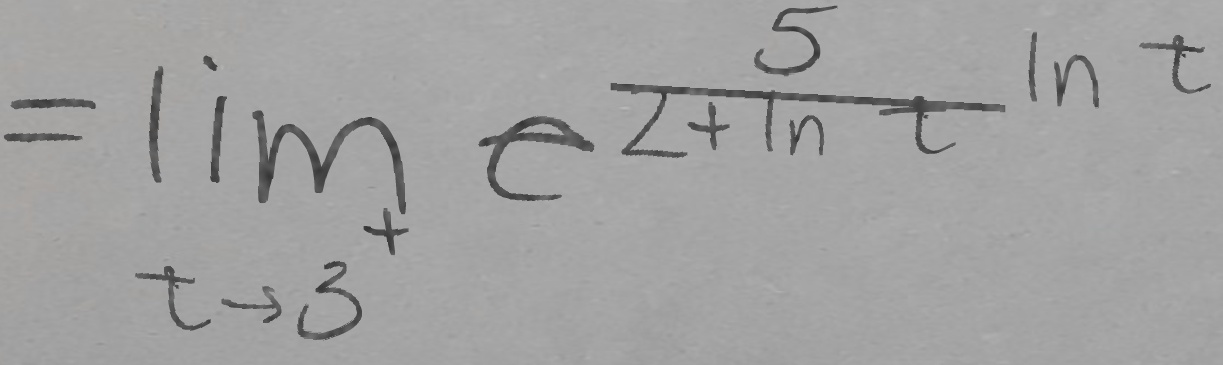 = lim_{t \to 3^+} e^{\frac{5}{2 + \ln t} \ln t}